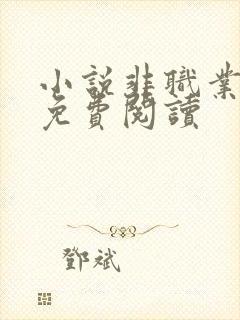 小說非職業
免費閱讀
鄧斌